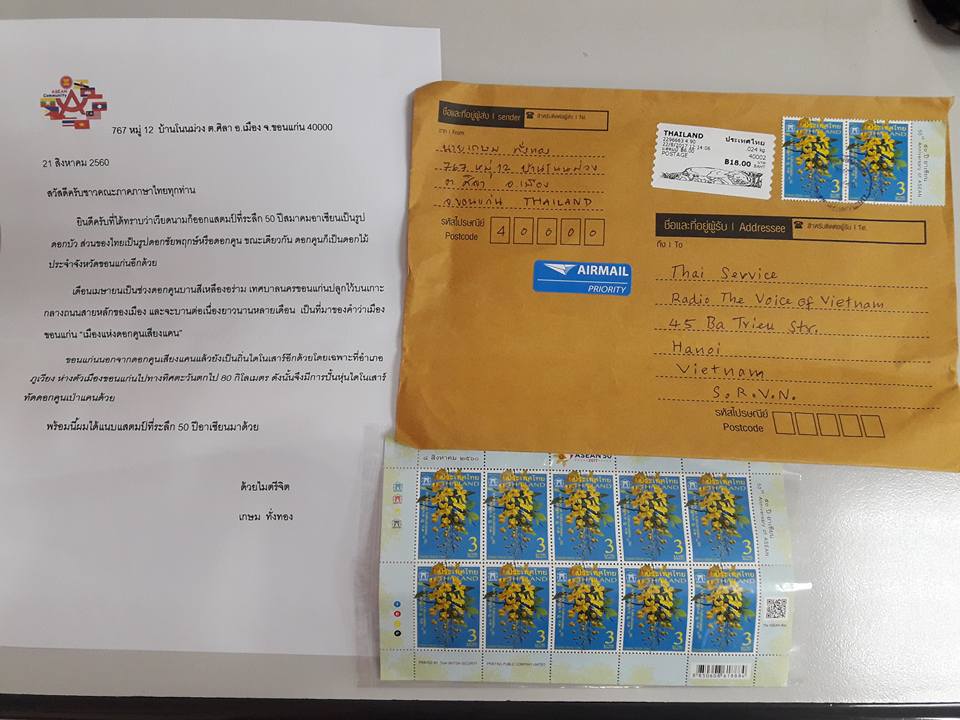 ASEAN
Community
767 หมู่ 12 บ้านโนนม่วง ต.ศิลา อ.เมือง จ.ขอนแก่น 40000
21 สิงหาคม 2560
สวัสดีครับชาวคณะภาคภาษาไทยทุกท่าน
ยินดีครับที่ได้ทราบว่าเวียดนามก็ออกแสตมป์ที่ระลึก 50 ปีสมาคมอาเซียนเป็นรูป
ดอกบัว ส่วนของไทยเป็นรูปดอกชัยพฤกษ์หรือดอกคูน ขณะเดียวกัน ดอกคูนก็เป็นดอกไม้
ประจำจังหวัดขอนแก่นอีกด้วย
เดือนเมษายนเป็นช่วงดอกคูนบานสีเหลืองอร่าม เทศบาลนครขอนแก่นปลูกไว้บนเกาะ
กลางถนนสายหลักของเมือง และจะบานต่อเนื่องยาวนานหลายเดือน เป็นที่มาของคำว่าเมือง
ขอนแก่น "เมืองแห่งดอกคูนเสียงแคน"
ขอนแก่นนอกจากดอกคูนเสียงแคนแล้วยังเป็นถิ่นไดโนเสาร์อีกด้วยโดยเฉพาะที่อำเภอ
ภูเวียง ห่างตัวเมืองขอนแก่นไปทางทิศตะวันตกไป 80 กิโลเมตร ดังนั้นจึงมีการปั้นหุ่นไดโนเสาร์
ทัดดอกคูนเป่าแคนด้วย
พร้อมนี้ผมได้แนบแสตมป์ที่ระลึก 50 ปีอาเซียนมาด้วย
ด้วยไมตรีจิต
เกษม ทั่งทอง
ชื่อและที่อยู่ผู้ส่ง | sender
สำหรับติดต่อผู้ส่ง | Tel.
จาก | From
นายเกษม ทั่งทอง
767 หมู่ 12 บ้านโนนม่วง
ต. ศิลา อ.เมือง
จ.ขอนแก่น THAILAND
รหัสไปรษณีย์
Postcode
40000
AIRMAIL
PRIORITY
THAILAND ประเทศไทย
.024 kg
40002
POSTAGE
฿18.00 บาท
BAHT
50th Anniversary of ASEAN
ชื่อและที่อยู่ผู้รับ | Addressee
สำหรับติดต่อผู้รับ | Tel.
ถึง | To
Thai Service
Radio The Voice of Vietnam
45 Ba Trieu Str.
Hanoi
Vietnam
S.R.V.N.
รหัสไปรษณีย์
Postcode
๘ สิงหาคม ๒๕๖๐
ASEAN 50
ประเทศไทย
THAILAND
3
ประเทศไทย
THAILAND
3
ประเทศไทย
THAILAND
3
ประเทศไทย
THAILAND
3
ประเทศไทย
THAILAND
3
๕๐ ปี อาเซียน
50th Anniversary of ASEAN
ประเทศไทย
THAILAND
3
ประเทศไทย
THAILAND
3
ประเทศไทย
THAILAND
3
ประเทศไทย
THAILAND
3
ประเทศไทย
THAILAND
3